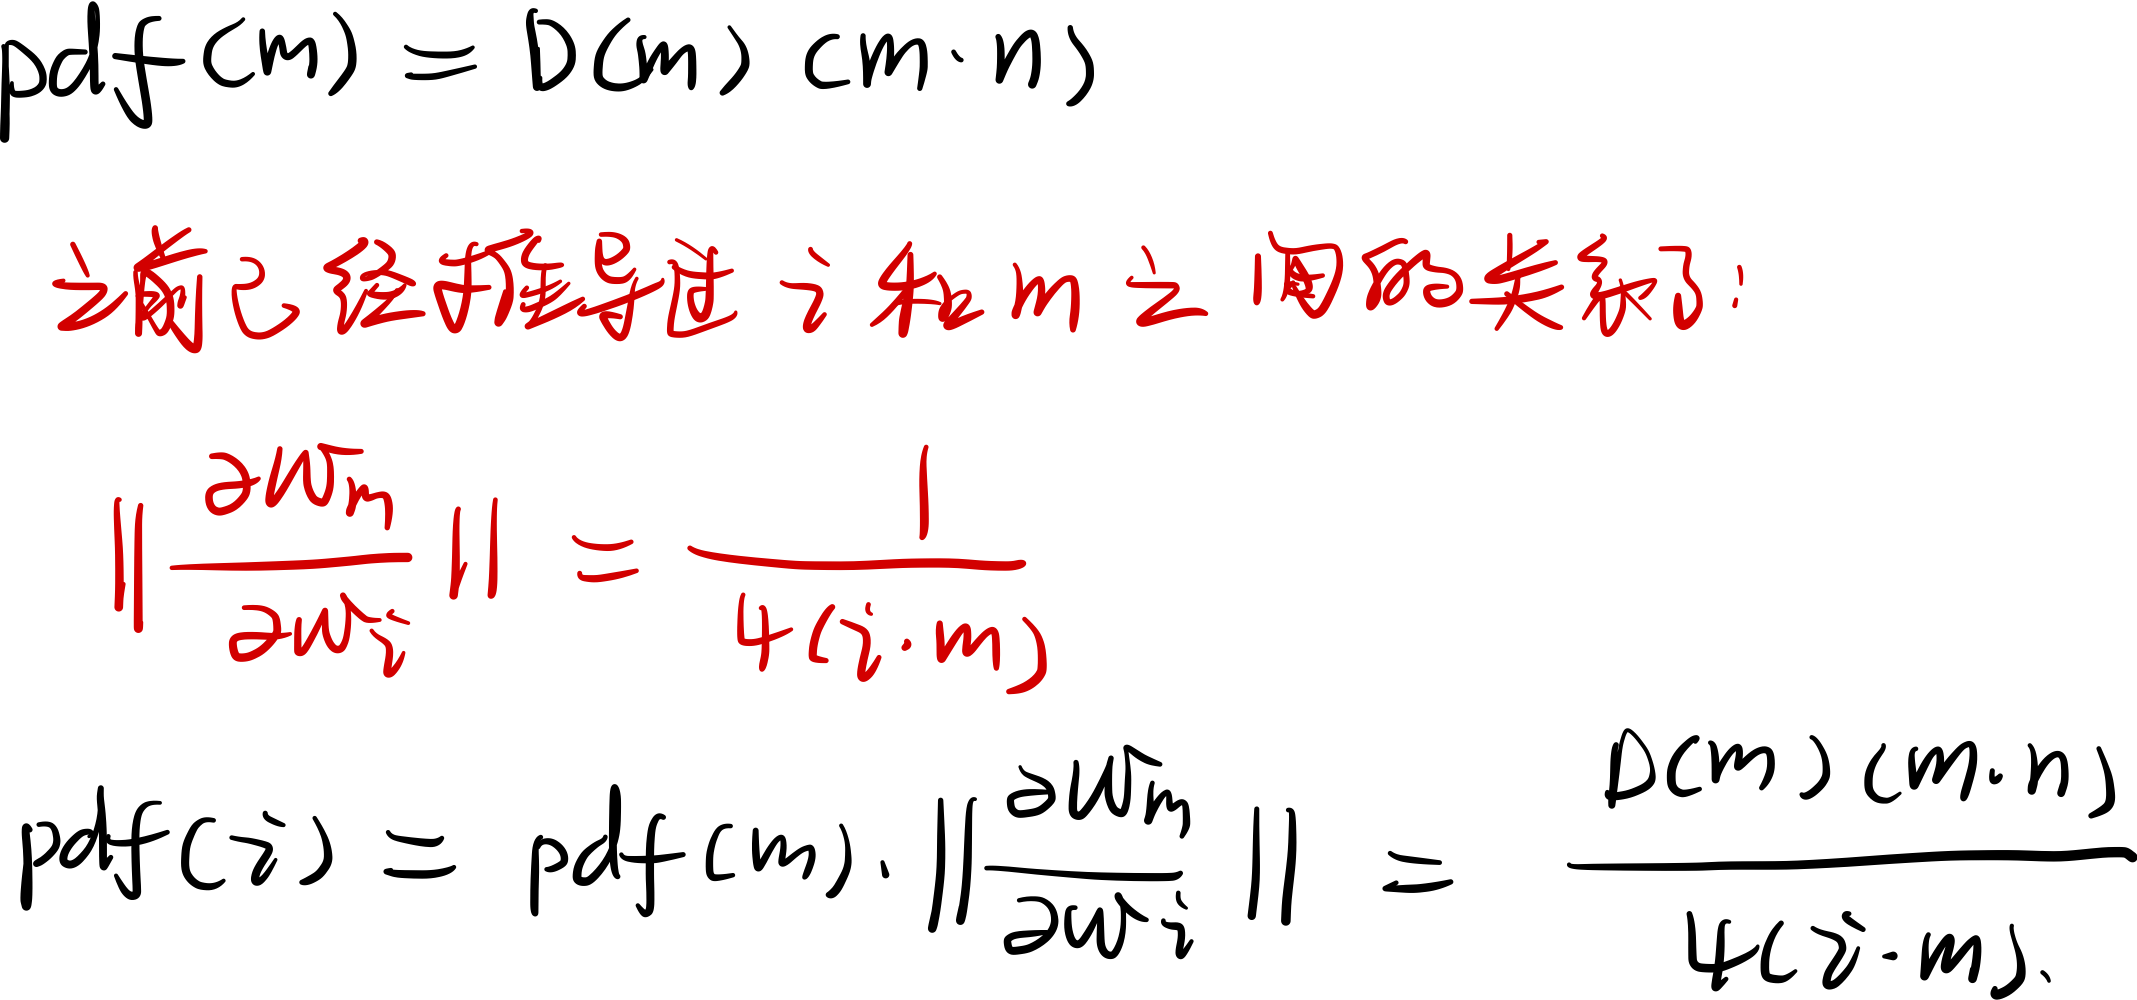 pdf(m) = D(m)(m·n)
之前已经推导过 i 和 m 之间的关系了:
‖∂ωm/∂ωi‖ = 1/4(i·m)
pdf(i) = pdf(m)·‖∂ωm/∂ωi‖ = D(m)(m·n)/4(i·m).